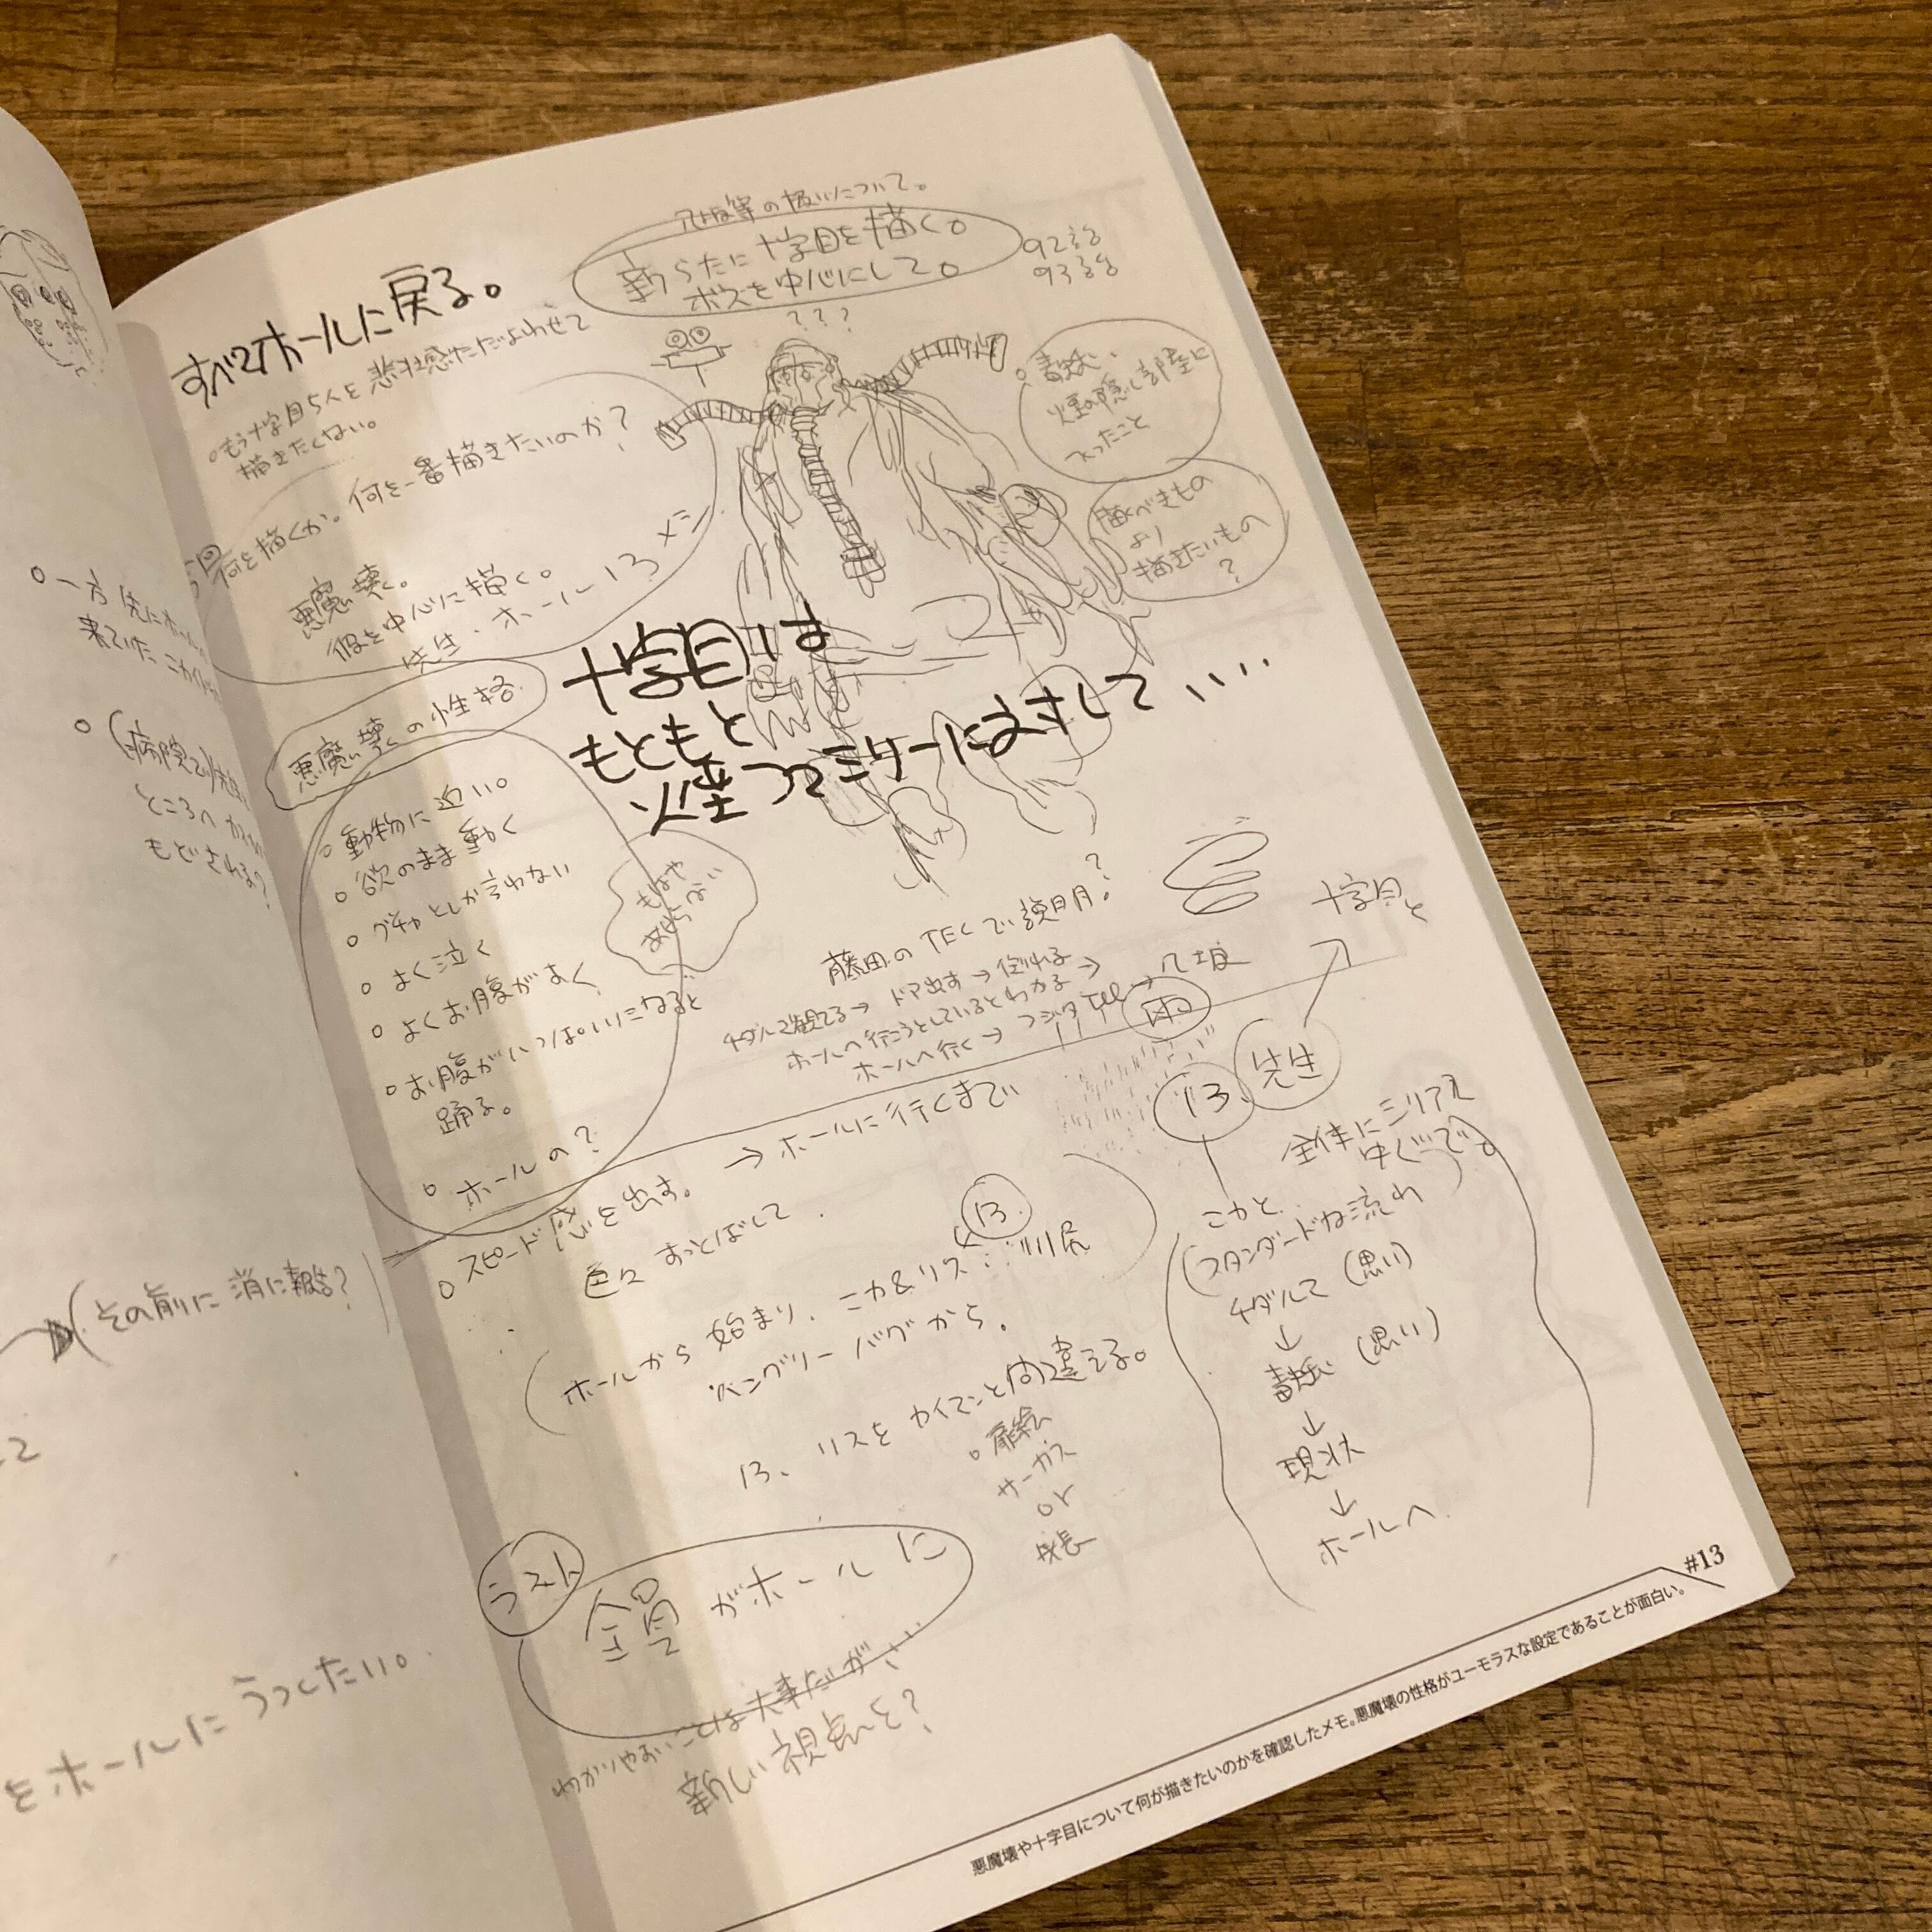 すべてホールに戻る。
の扱いについて。
新らたに十字目を描く。
ボスを中心にして。
92話
93話
???
もう十字目5人を悲壮感ただよわせて
描きたくない。
今回何を描くか。何を一番描きたいのか?
悪魔壊。
彼を中心に描く。
先生・ホール 13 メシ
毒蛾、
煙の隠し部屋に
入ったこと
描くべきもの
より
描きたいもの
?
十字目は
もともと
煙ファミリーにまけして、、、、
悪魔壊の性格
動物に近い。
欲のまま動く
グギャとしか言わない
よく泣く
よくお腹がすく
お腹がいっぱいになると
踊る。
ホールの?
もはや
藤田のTELで説明?
チダルマ観てる→ドア出す→倒れる
ホールへ行こうとしているとわかる→
ホールへ行く→フジタTEL→
雨
十字目と
13
先生
全体にシリアス
中ぐで。
→ホールに行くまで
スピード感を出す。
色々すっとばして
13
川尻
(ホールから始まり、ニカ&リス
ハングリーバグから。
13、リスをカイマンと間違える。
扉絵
サーカス
or
成長
こかと
(スタンダードな流れ
チダルマ(思い)
↓
毒蛾(思い)
↓
現状
↓
ホールへ
ラスト
全員がホールに
わかりやすいことは大事だが、、、
新しい視点を?
一方先にホール
来ていた
(病院で)先生
ところへ
もどされる?
(その前に消に報告?
をホールにうつしたい。
#13
悪魔壊や十字目について何が描きたいのかを確認したメモ。悪魔壊の性格がユーモラスな設定であることが面白い。